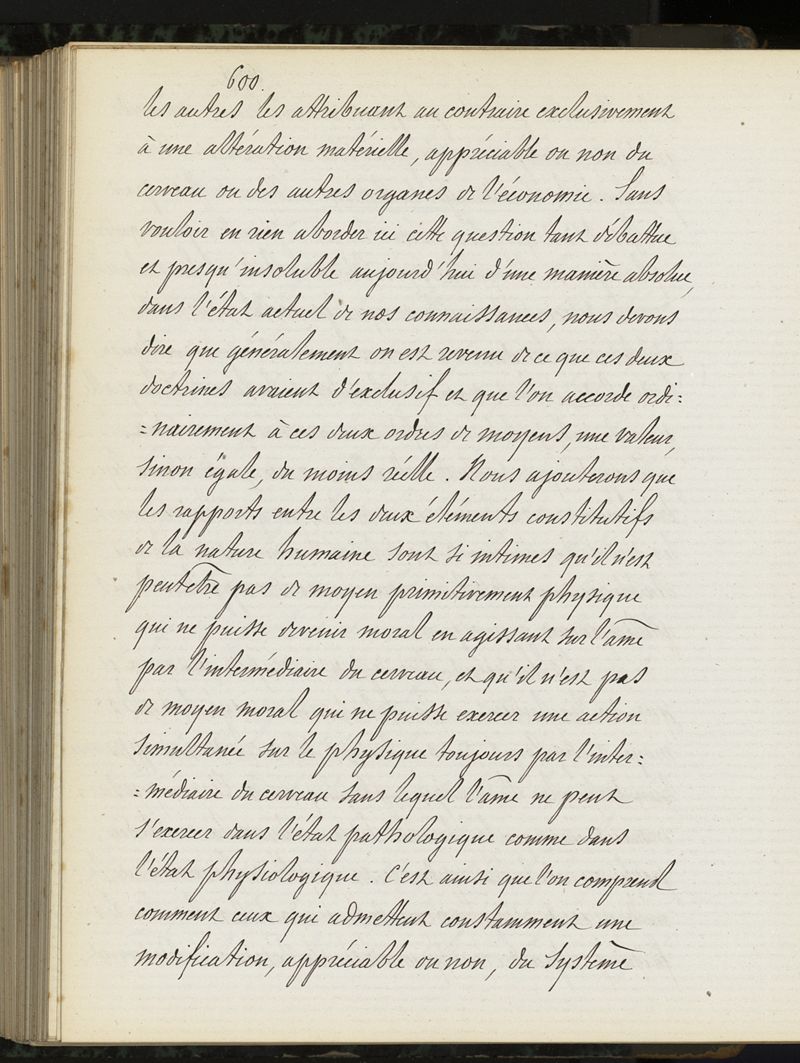 600.
les autres les attribuant au contraire exclusivement
à une altération matérielle, appréciable ou non du
cerveau ou des autres organes de l'économie. Sans
vouloir en rien aborder ici cette question tant débattue
et presqu'insoluble aujourd'hui d'une manière absolue,
dans l'état actuel de nos connaissances, nous devons
dire que généralement on est revenu de ce que ces deux
doctrines avaient d'exclusif et que l'on accorde ordi:
=nairement à ces deux ordres de moyens, une valeur,
sinon égale, du moins réelle. Nous ajouterons que
les rapports entre les deux éléments constitutifs
de la nature humaine sont si intimes qu'il n'est
peutêtre pas de moyen primitivement physique
qui ne puisse devenir moral en agissant sur l'âme
par l'intermédiaire du cerveau, et qu'il n'est pas
de moyen moral qui ne puisse exercer une action
simultanée sur le physique toujours par l'inter:
=médiaire du cerveau sans lequel l'âme ne peut
s'exercer dans l'état pathologique comme dans
l'état physiologique. C'est ainsi que l'on comprend
comment ceux qui admettent constamment une
modification, appréciable ou non, du système